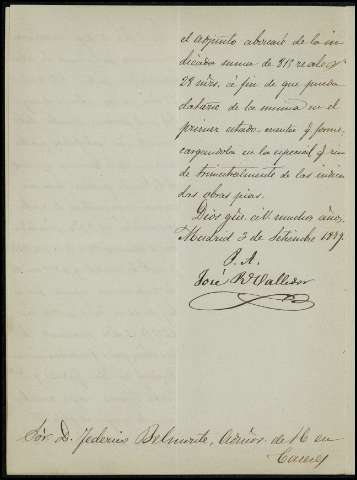 el adjunto abonaré de la in-
dicada suma de 815 reales v.n
28 mrs. á fin de que pueda
datarse de la misma en el
primer estado cuenta q. forme,
cargandola en la especial q. rin-
de trimestralmente de las indica-
das obras pias.
Dios gue. á V. muchos años.
Madrid 3 de Setiembre 1849.
P. A.
José R. Valledor
Sor. D. Federico Belmonte, Admor. de H. en